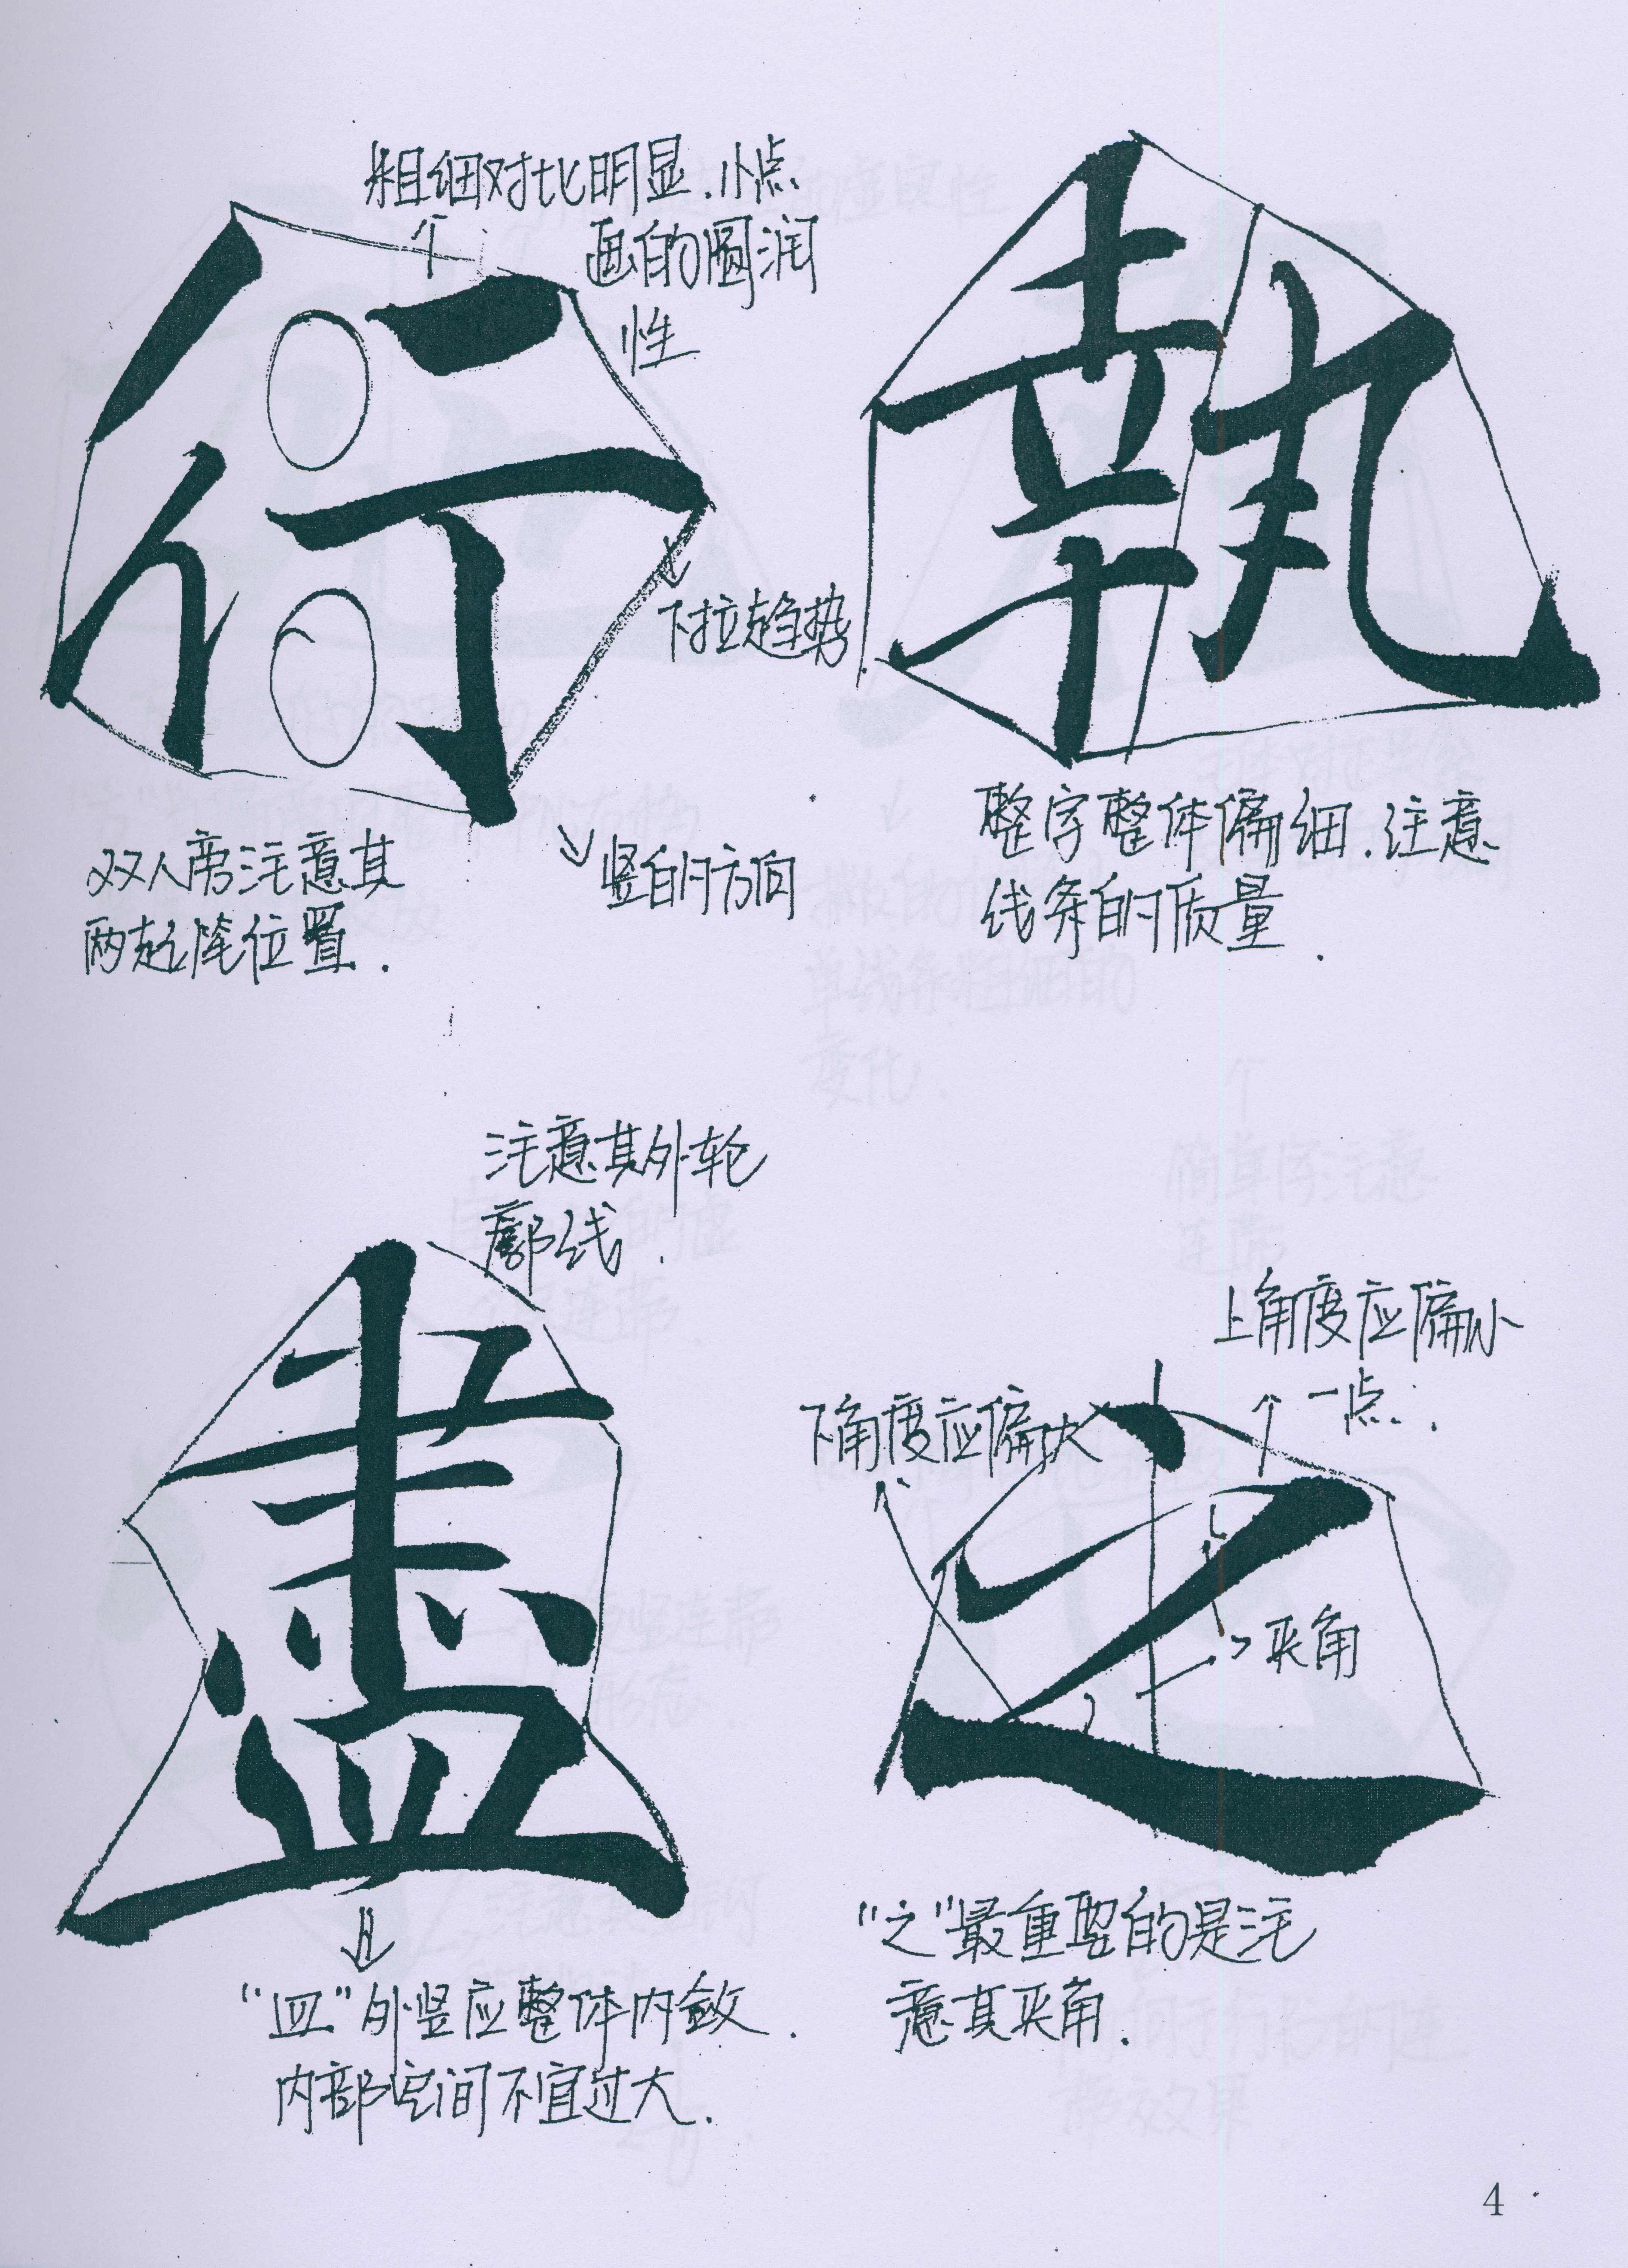 粗细对比明显.小点
画的圆润
性
行
下拉趋势
双人旁注意其
两起笔位置.
竖的方向
執
整字整体偏细.注意
线条的质量.
注意其外轮
廓线.
盡
"皿"外竖应整体内敛.
内部空间不宜过大.
上角度应偏小
一点.
下角度应偏大
之
夹角
"之"最重要的是注
意其夹角.
4